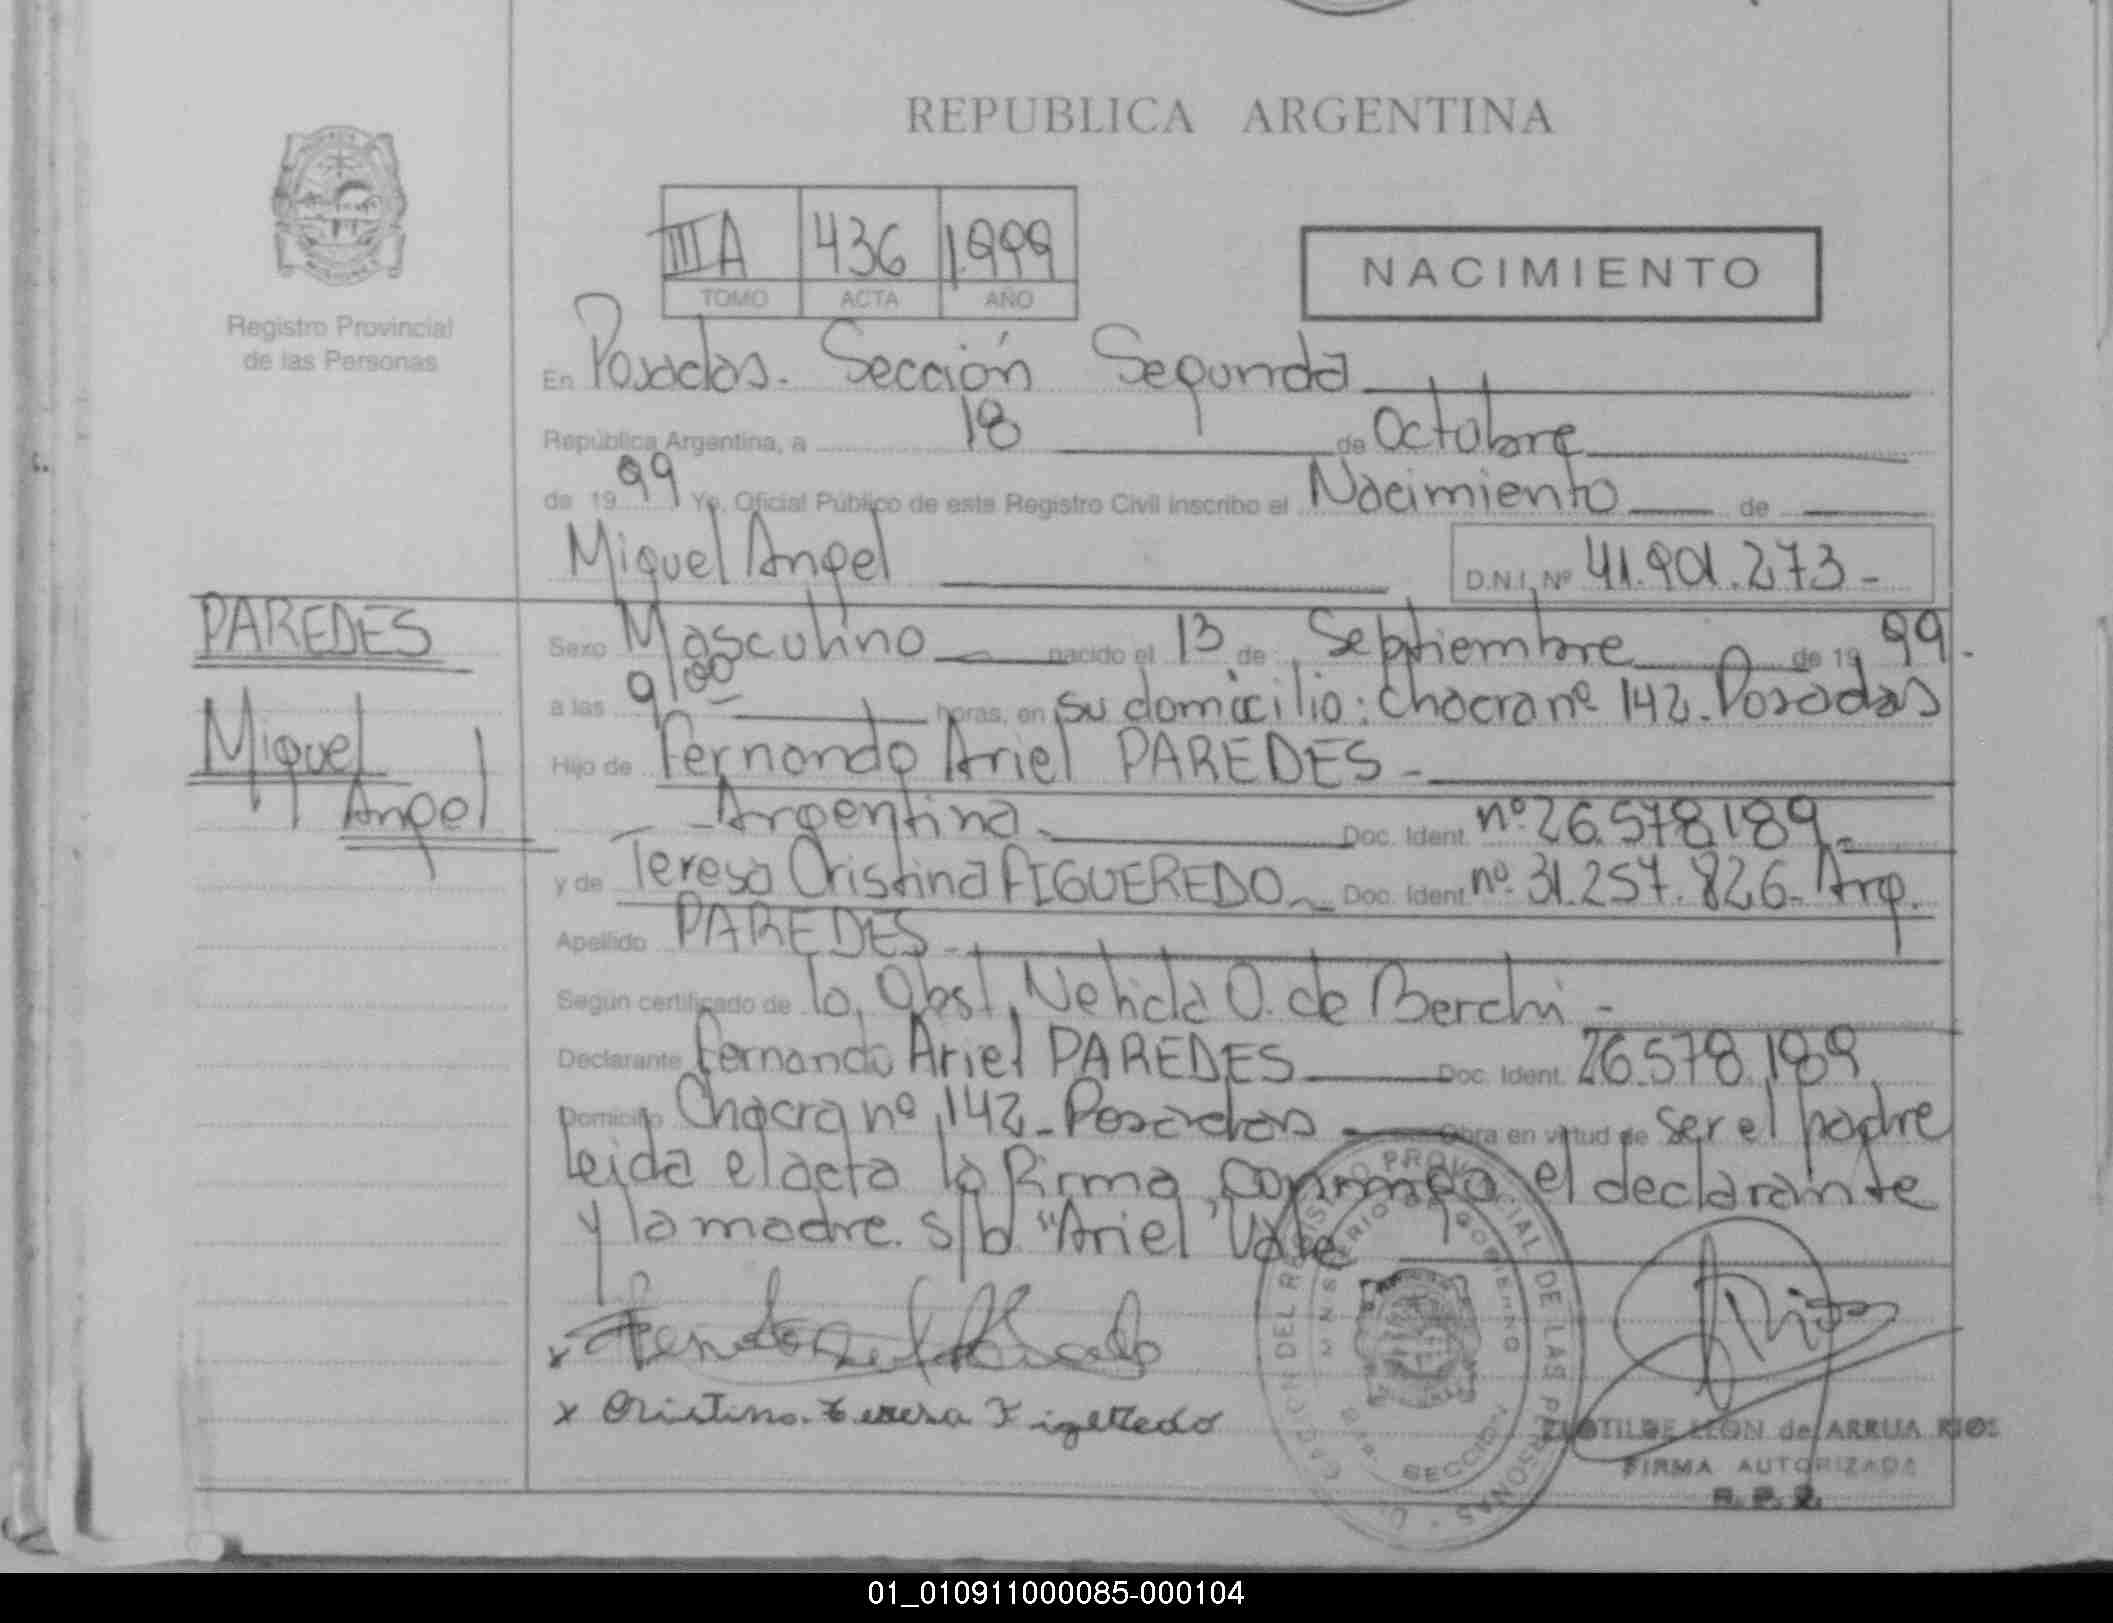 REPUBLICA ARGENTINA
Registro Provincial
de las Personas
III A 436 1.999
TOMO ACTA AÑO
NACIMIENTO
En Posadas. Sección Segunda
República Argentina, a 18 de Octubre
de 19 99 Yo, Oficial Público de este Registro Civil inscribo el Nacimiento de
Miguel Angel D.N.I. Nº 41.901.273-
PAREDES
Miguel
Angel
Sexo Masculino nacido el 13 de Septiembre de 19 99.
a las 9/00 horas, en su domicilio: Chacra nº 142. Posadas
Hijo de Fernando Ariel PAREDES-
-Argentina. Doc. Ident. nº 26.578.189-
y de Teresa Cristina FIGUEREDO Doc. Ident. nº 31.257.826- Arg.
Apellido PAREDES-
Según certificado de la Obst. Nelida O. de Berchi-
Declarante Fernando Ariel PAREDES Doc. Ident. 26.578.189
Domicilio Chacra nº 142- Posadas Obra en virtud de ser el padre
Leida el acta la firma conmigo el declarante
y la madre. s/b "Ariel" Vale
x
x Cristina Teresa Figueredo
CLOTILDE LEON de ARRUA RIOS
FIRMA AUTORIZADA
R. P. P.
DEL REGISTRO PROVINCIAL DE LAS PERSONAS
MINISTERIO DE GOBIERNO
SECCION
01_010911000085-000104